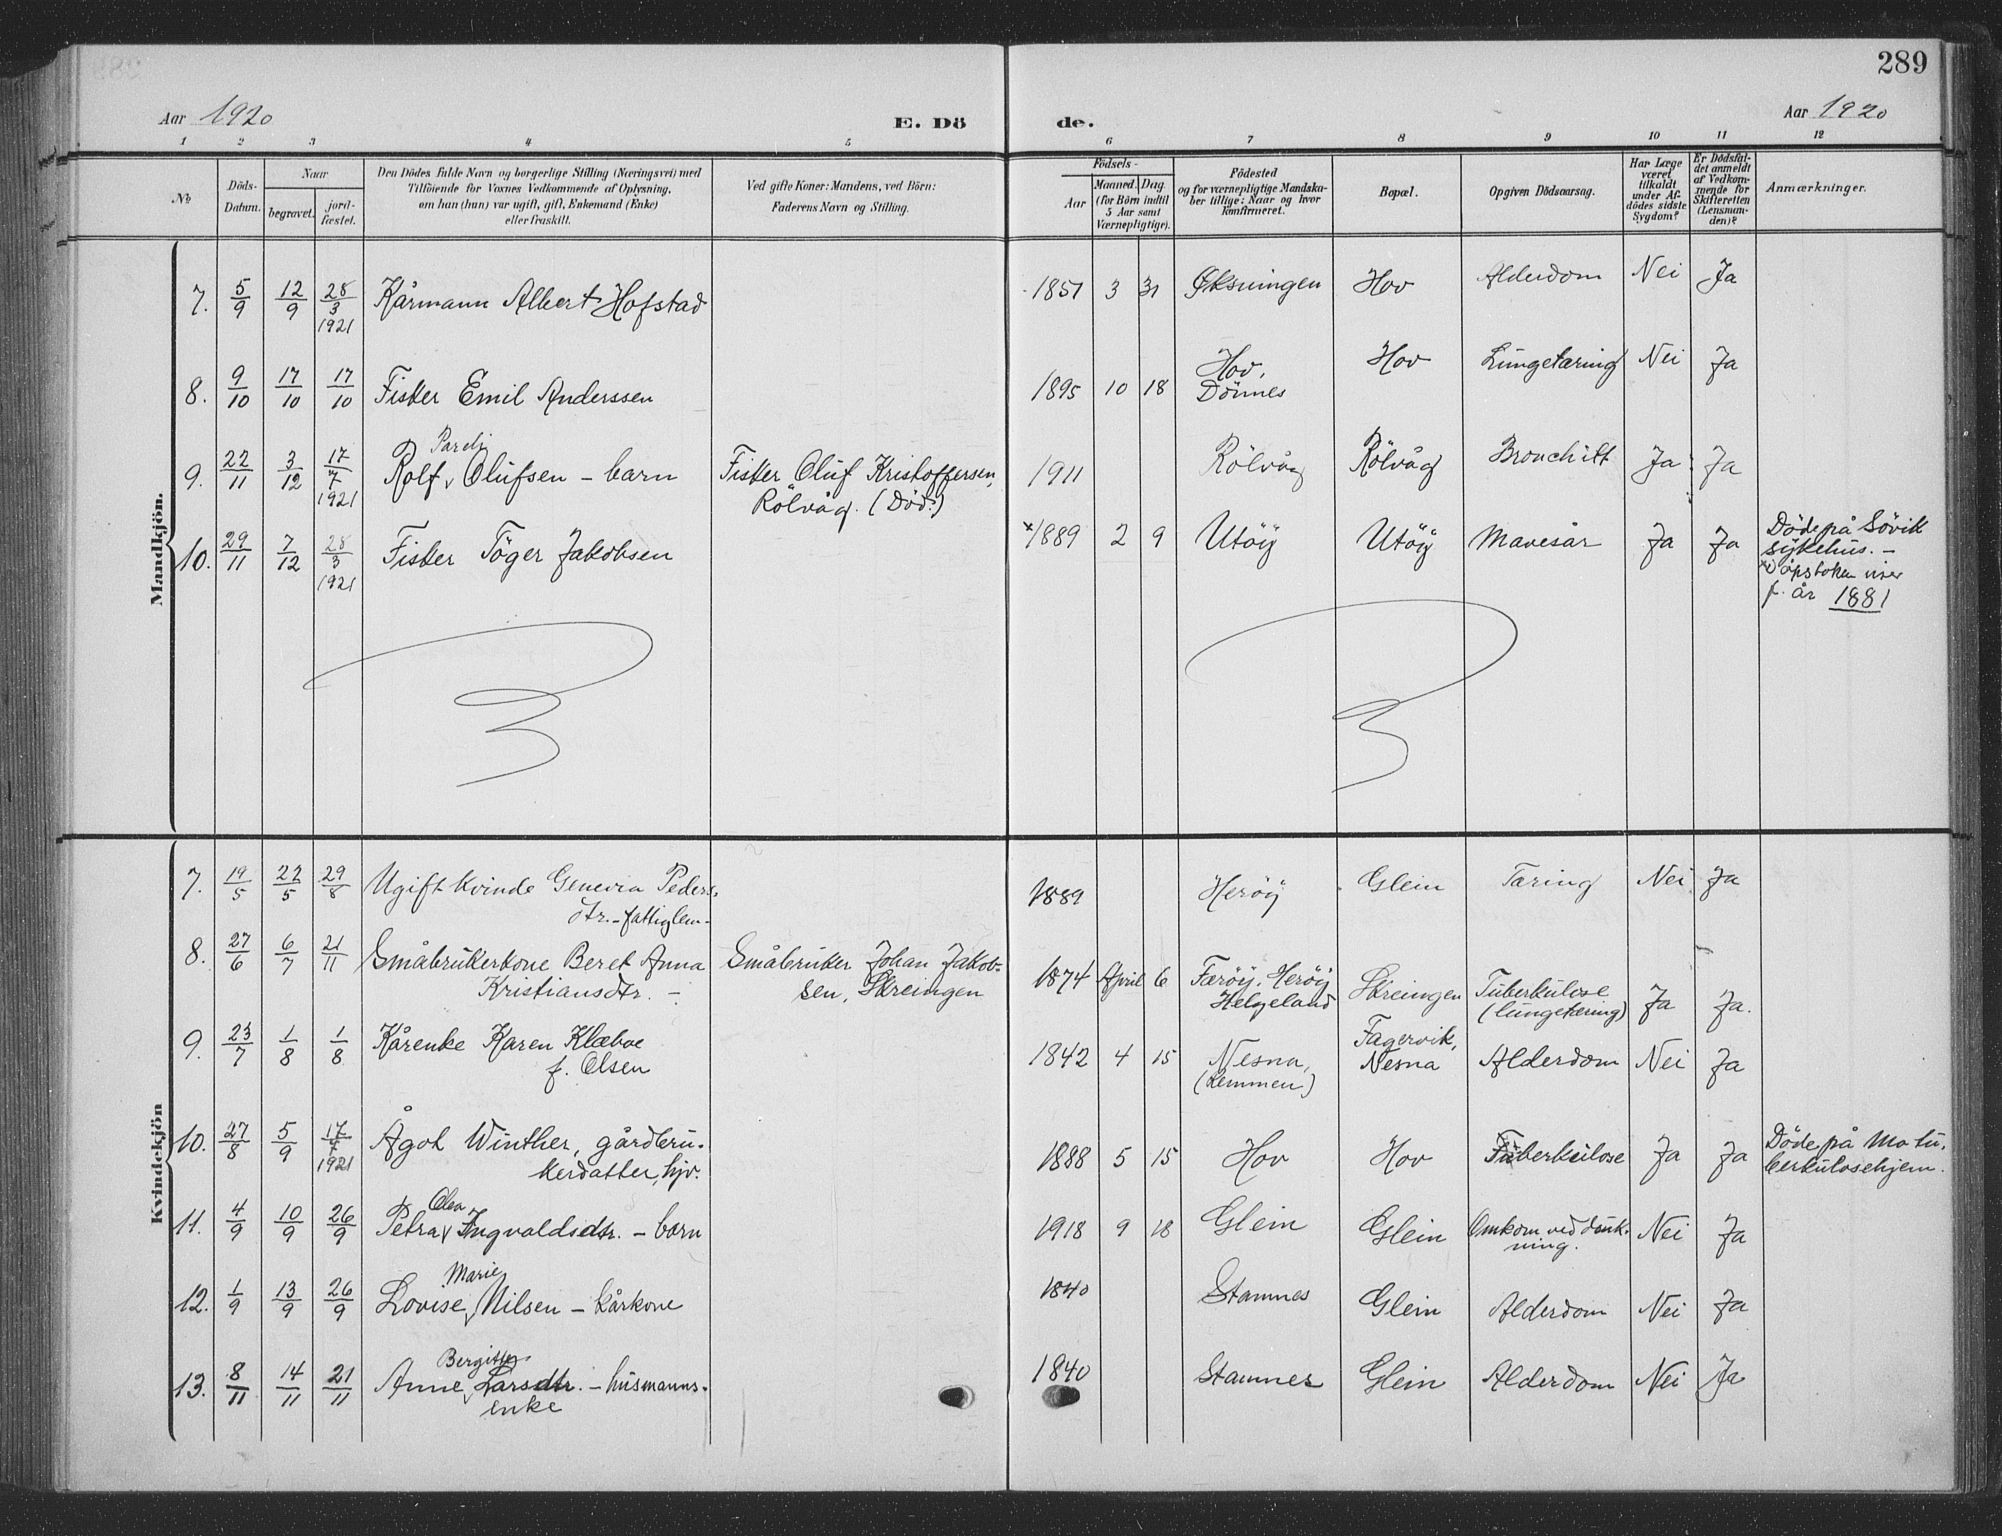 289
Aar 1920
E. Dö
de.
Aar 1920
1 2 3 4 5 6 7 8 9 10 11 12
No
Döds-
Datum.
Naar
begravet.
jord-
fæstet.
Den Dödes fulde Navn og borgerlige Stilling (Næringsvei) med
Tilföiende for Voxnes Vedkommende af Oplysning,
om han (hun) var ugift, gift, Enkemand (Enke)
eller fraskilt.
Ved gifte Koner: Mandens, ved Börn:
Faderens Navn og Stilling.
Födsels-
Aar
Maaned. Dag.
(for Börn indtil
5 Aar samt
Værnepligtige).
Födested
og for værnepligtige Mandska-
ber tillige: Naar og hvor
konfirmeret.
Bopæl.
Opgiven Dödsaarsag.
Har Læge
været
tilkaldt
under Af-
dödes sidste
Sygdom?
Er Dödsfal-
det anmeldt
af Vedkom-
mende for
Skifteretten
(Lensman-
den)?
Anmærkninger.
Mandkjön.
7. 5/9 12/9 28/3 1921 Kårmann Albert Hofstad 1851 3 31 Øksningen Hov Alderdom Nei Ja
8. 9/10 17/10 17/10 Fisker Emil Anderssen 1895 10 18 Hov, Dönnes Hov Lungetæring Nei Ja
9. 22/11 3/12 17/7 1921 Rolf Olufsen - barn Fisker Oluf Kristoffersen,
Rölvåg. (Död.) 1911 Rölvåg Rölvåg Bronchitt Ja Ja
10. 29/11 7/12 28/3 1921 Fisker Töger Jakobsen × 1889 2 9 Utöy Utöy Mavesår Ja Ja Döde på Sövik
sykehus. -
×) Dåpsboken viser
f. år 1881
Kvindekjön
7. 19/5 22/5 29/8 Ugift kvinde Genevia Peders-
dtr. - fattiglem - 1889 Heröy Glein Tæring Nei Ja
8. 27/6 6/7 21/11 Småbrukerkone Beret Anna
Kristiansdtr. - Småbruker Johan Jakob-
sen, Skreingen 1874 April 6 Færöy, Heröy
Helgeland Skreingen Tuberkulose
(lungetæring) Ja Ja.
9. 23/7 1/8 1/8 Kårenke Karen Klæboe
f. Olsen 1842 4 15 Nesna,
(Remmen) Fagervik,
Nesna Alderdom Nei Ja
10. 27/8 5/9 17/7 1921 Ågot Winther, gårdbru-
kerdatter, hjv. 1888 5 15 Hov Hov Tuberkulose Ja Ja Döde på Mo tu-
berkulosehjem.
11. 4/9 10/9 26/9 Petra Olea Ingvaldsdtr. - barn 1918 9 18 Glein Glein Omkom ved druk-
ning. Nei Ja
12. 1/9 13/9 26/9 Lovise Marie Nilsen - kårkone 1840 Stamnes Glein Alderdom Nei Ja
13. 8/11 14/11 21/11 Anne Bergitte Larsdtr. - husmanns-
enke 1840 Stamnes Glein Alderdom Nei Ja